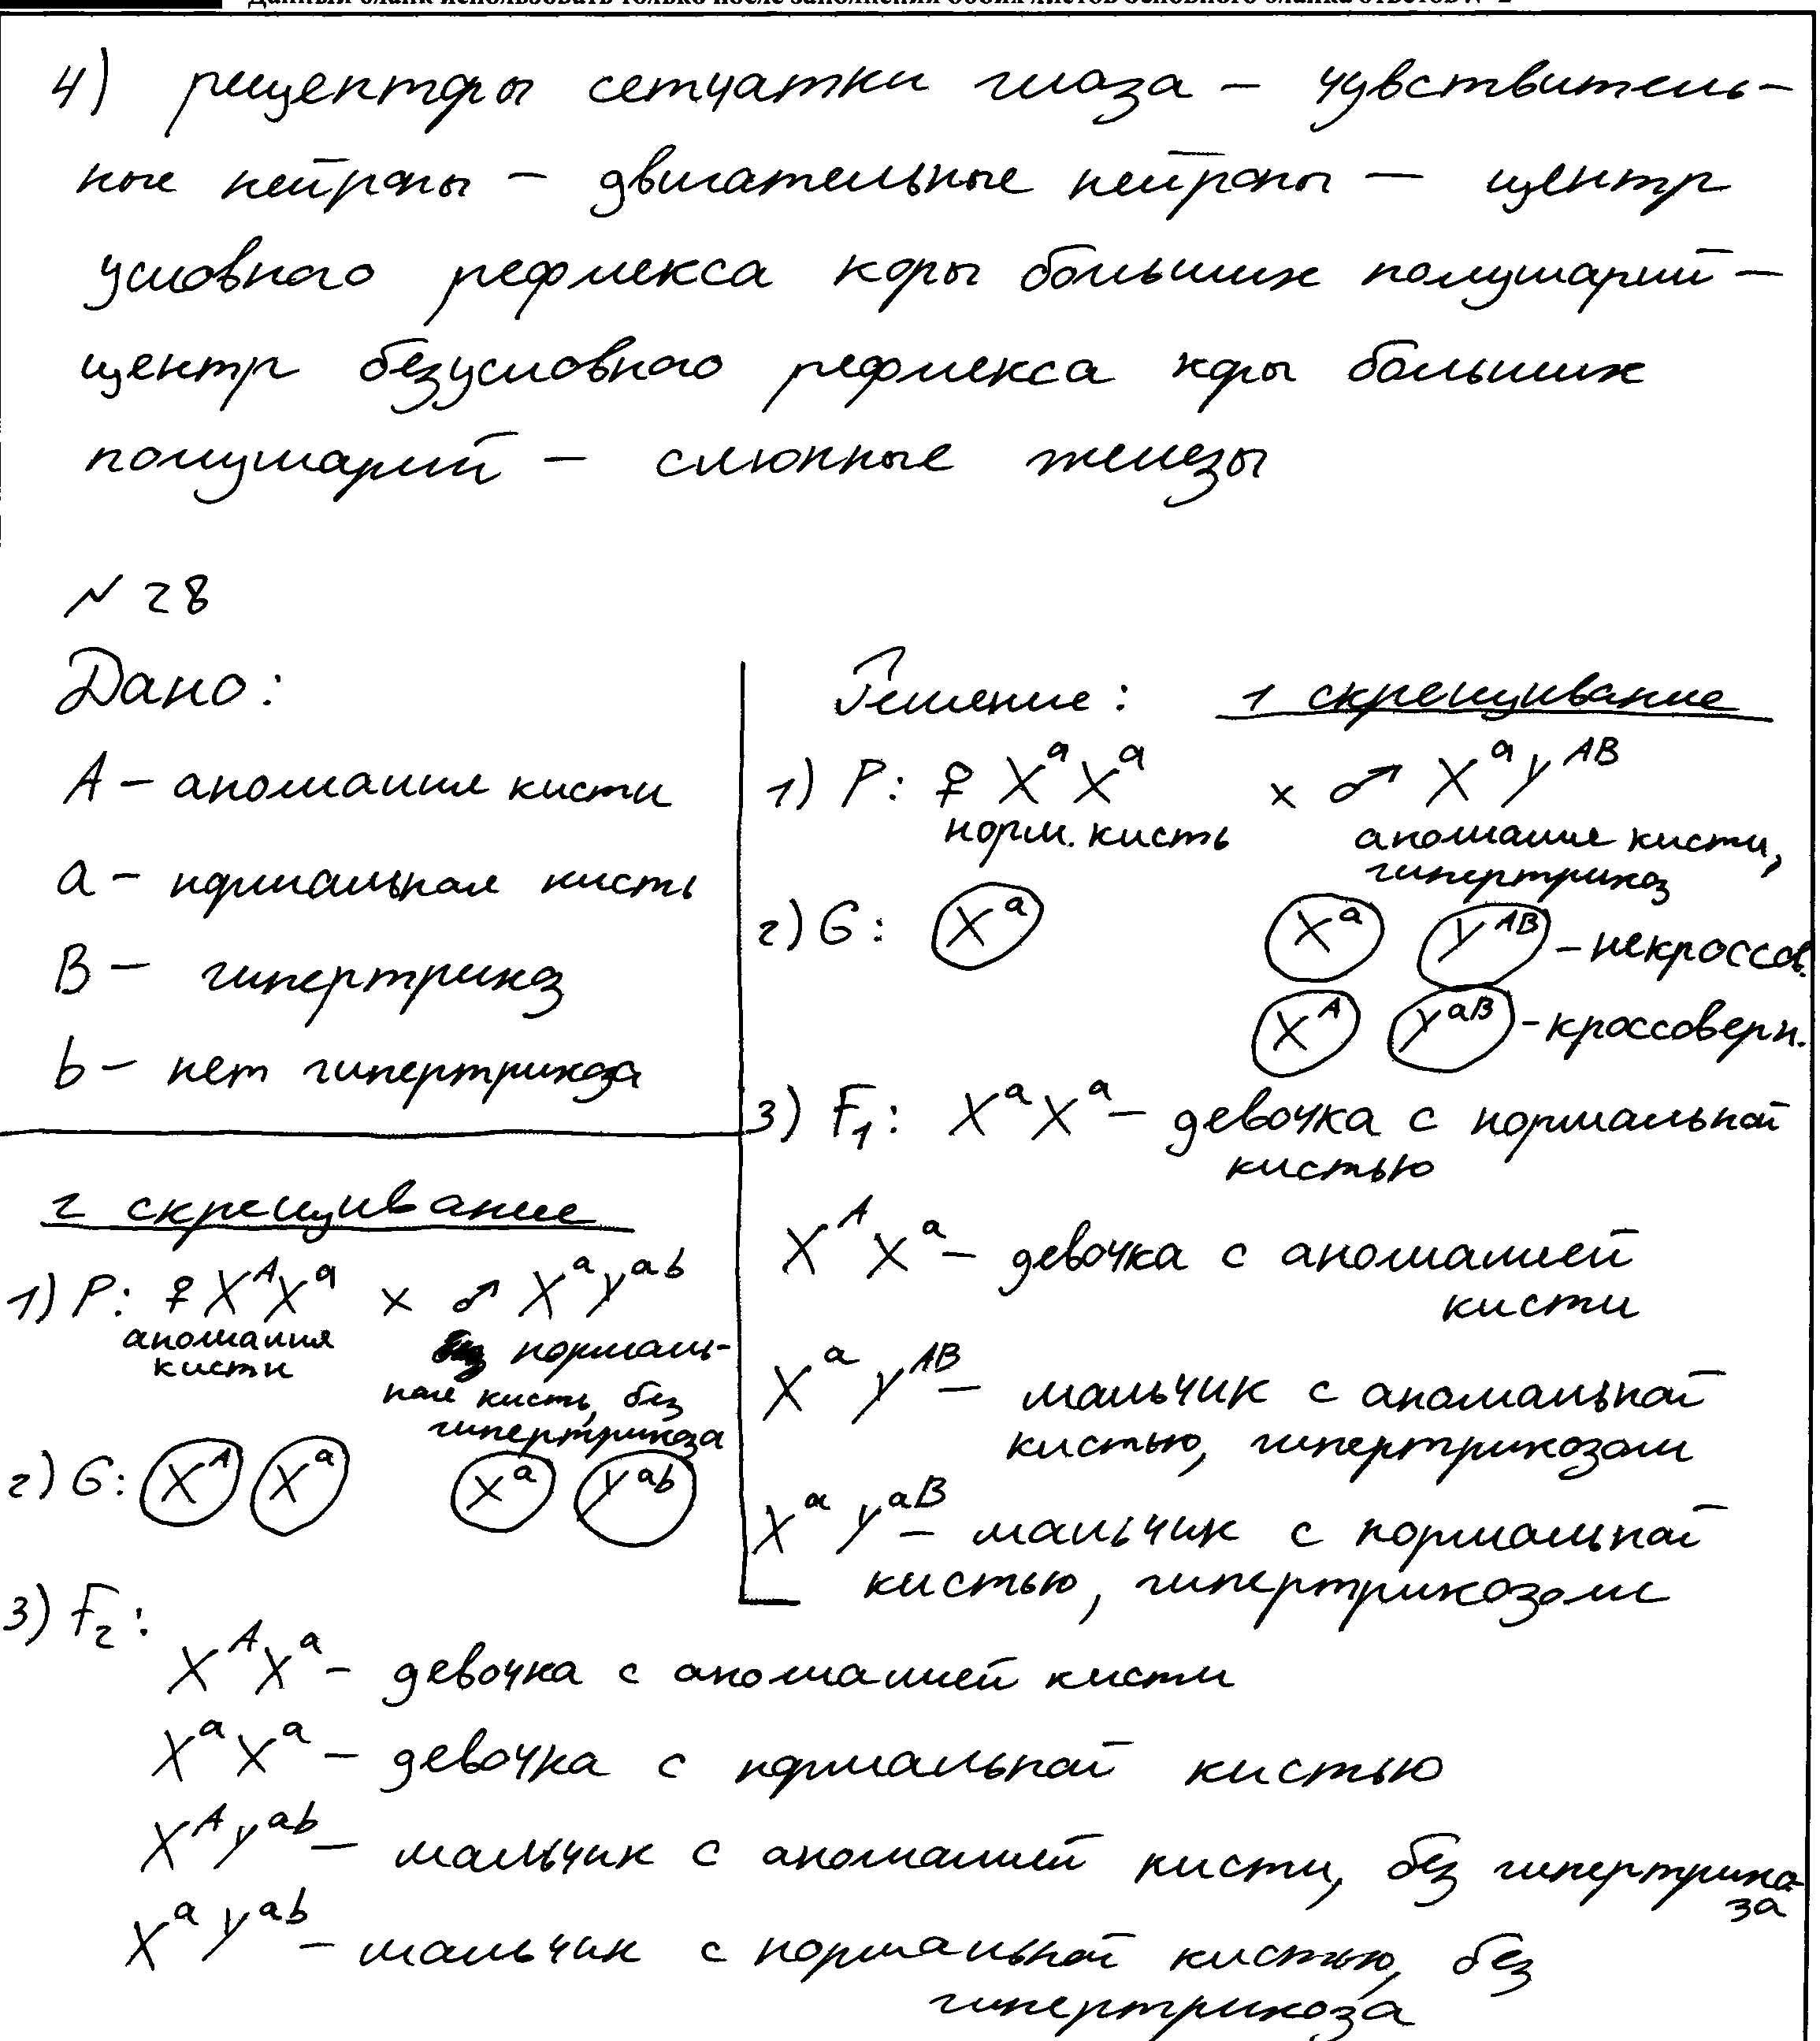 4) рецепторы сетчатки глаза – чувствитель-
ные нейроны – двигательные нейроны – центр
условного рефлекса коры больших полушарий –
центр безусловного рефлекса коры больших
полушарий – слюнные железы
№ 28
Дано:
A – аномалия кисти
a – нормальная кисть
B – гипертрихоз
b – нет гипертрихоза
Решение: 1 скрещивание
1) P: ♀ XᵃXᵃ × ♂ XᵃYᴬᴮ
норм. кисть аномалия кисти,
гипертрихоз
2) G: Xᵃ Xᵃ Yᴬᴮ – некроссов.
Xᴬ Yᵃᴮ – кроссоверн.
3) F₁: XᵃXᵃ – девочка с нормальной
кистью
XᴬXᵃ – девочка с аномалией
кисти
XᵃYᴬᴮ – мальчик с аномальной
кистью, гипертрихозом
XᵃYᵃᴮ – мальчик с нормальной
кистью, гипертрихозом
2 скрещивание
1) P: ♀ XᴬXᵃ × ♂ XᵃYᵃᵇ
аномалия
кисти
нормаль-
ная кисть, без
гипертрихоза
2) G: Xᴬ Xᵃ Xᵃ Yᵃᵇ
3) F₂:
XᴬXᵃ – девочка с аномалией кисти
XᵃXᵃ – девочка с нормальной кистью
XᴬYᵃᵇ – мальчик с аномалией кисти, без гипертрихо-
за
XᵃYᵃᵇ – мальчик с нормальной кистью, без
гипертрихоза